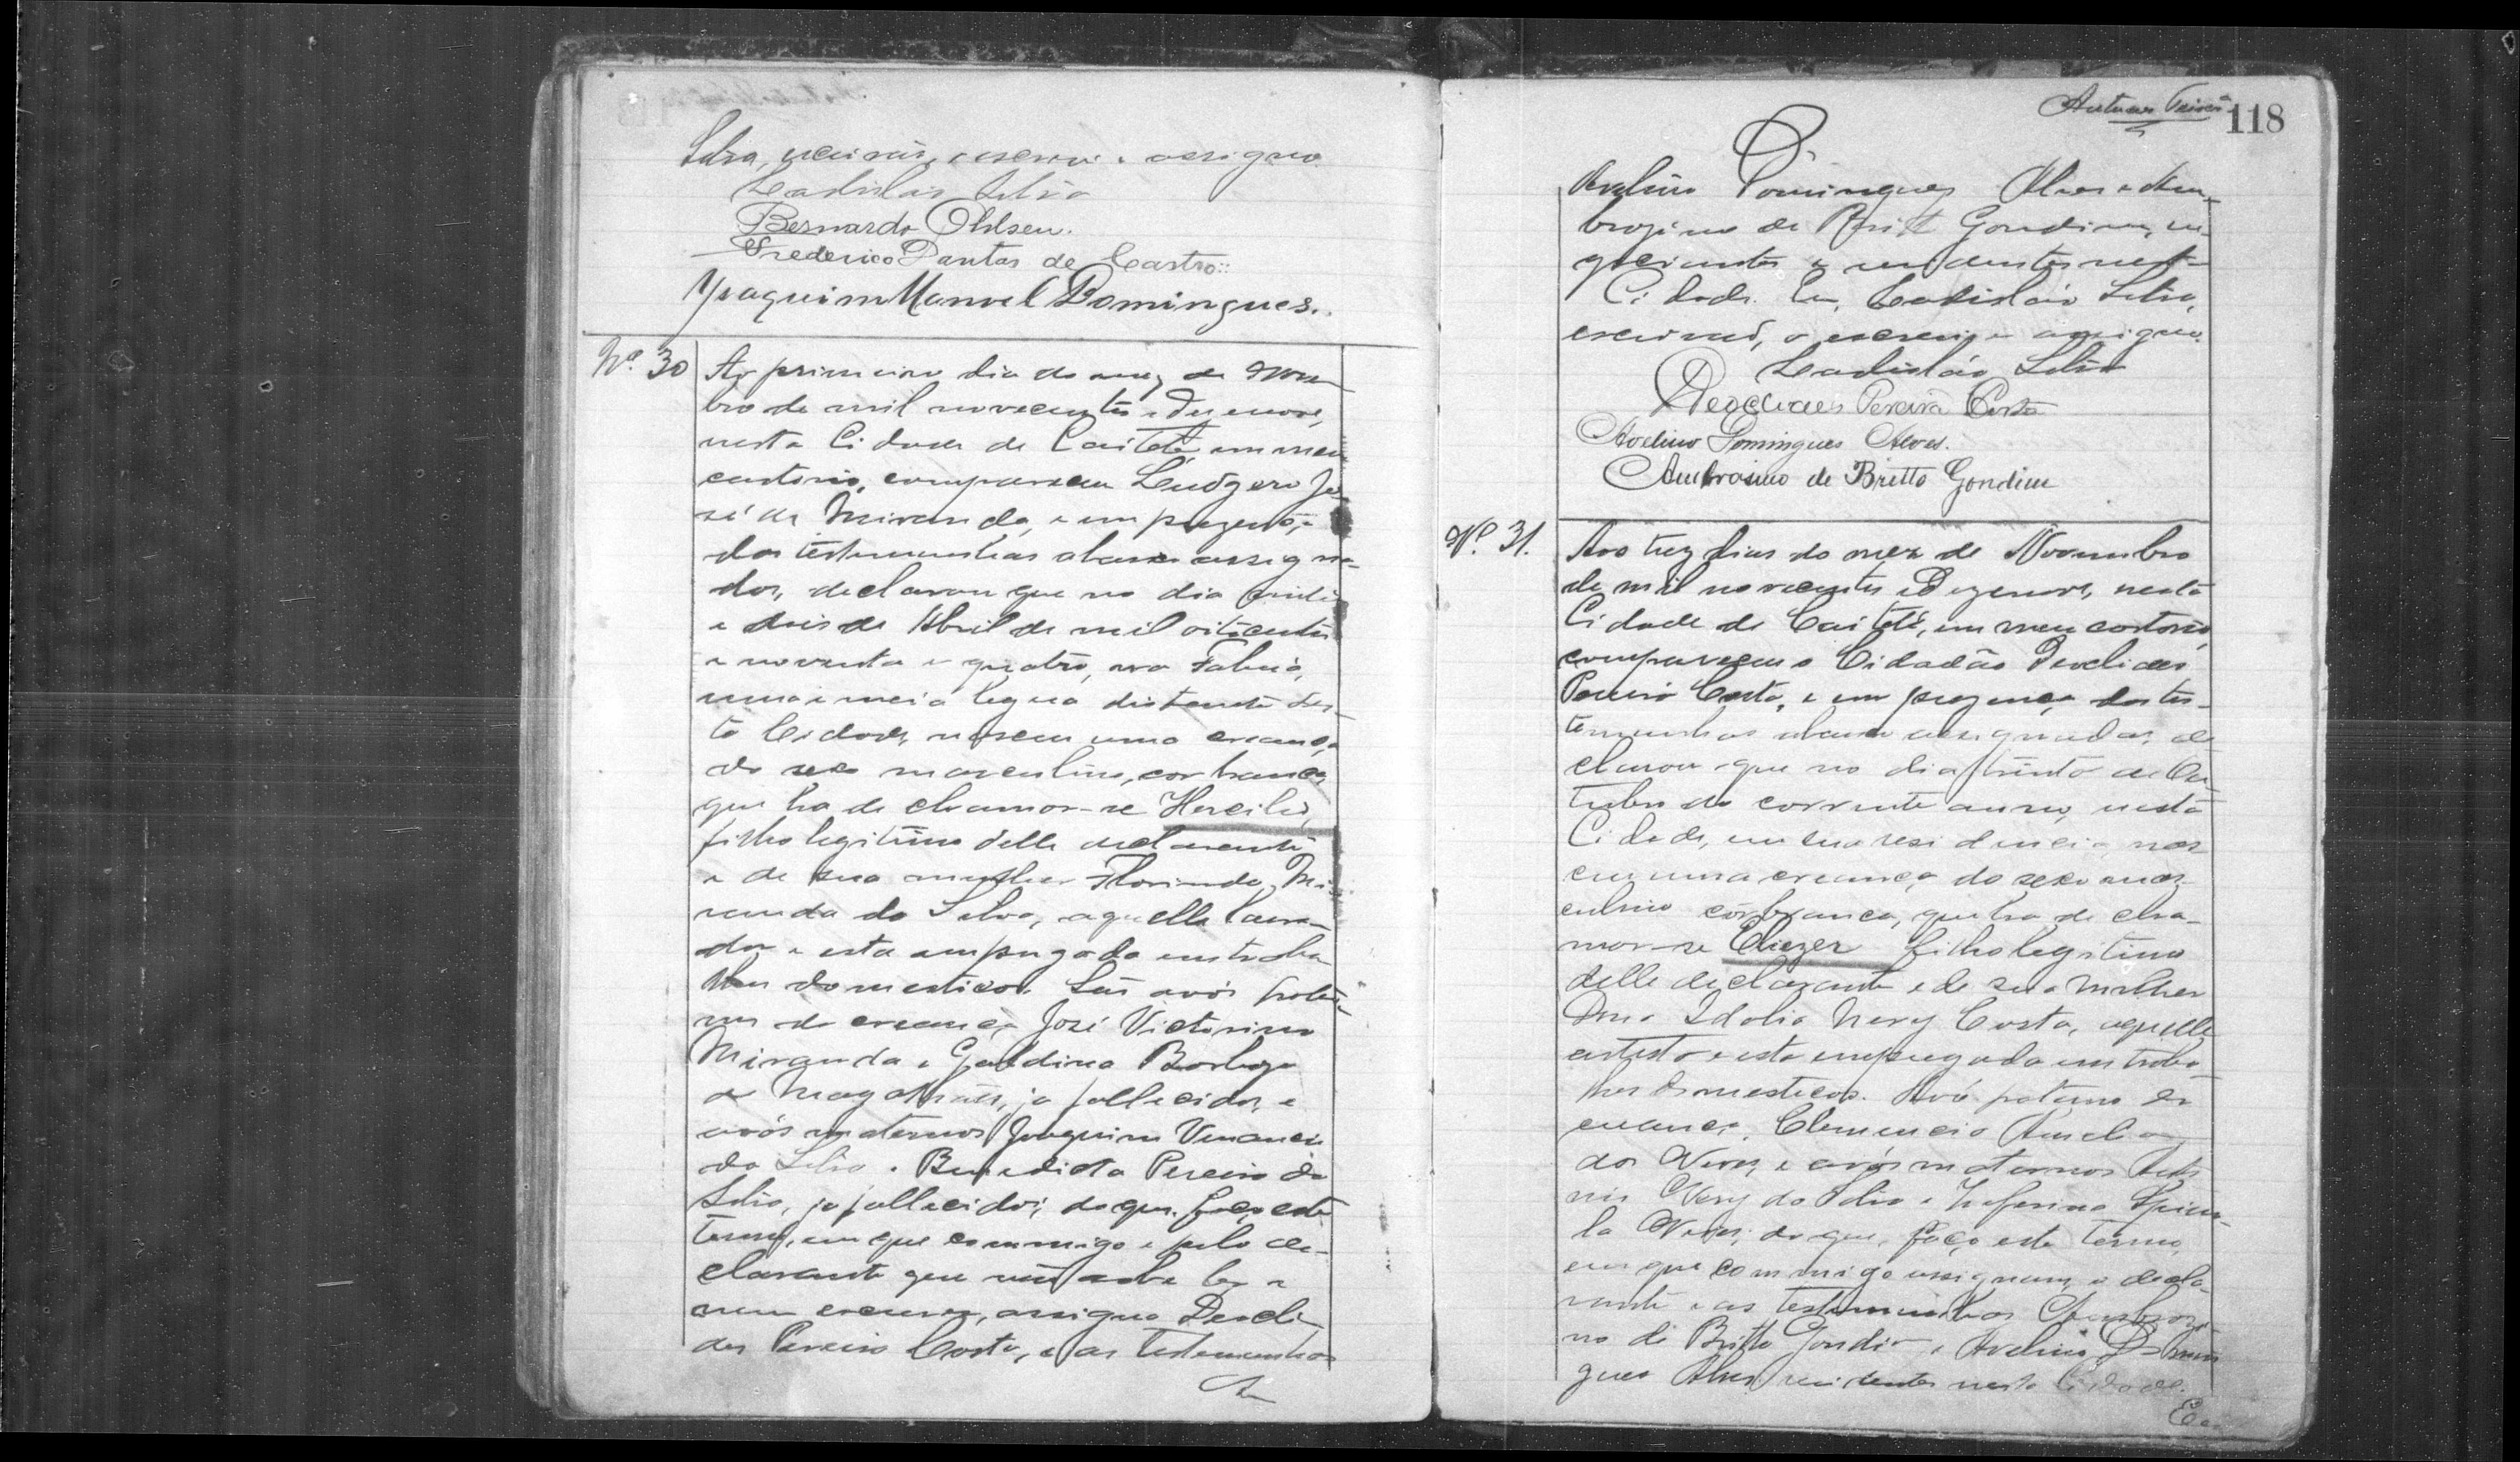 Silva, escrivão, o escrevi e assigno
Ladisláo Silva
Bernardo Ohlsen.
Frederico Dantas de Castro
Joaquim Manoel Domingues.
Nº. 30
Ao primeiro dia do mez de Novem
bro de mil novecentos e dezenove,
nesta Cidade de Caiteté, em meu
cartorio, compareceu Liudgero Jo
sé de Miranda, e em prezença
das testemunhas abaixo assigna-
das, declarou que no dia vinte
e dois de Abril de mil oitocentos
e noventa e quatro, no
uma e meia legua distante des-
ta Cidade, nasceu uma creança
do sexo masculino, cor branca,
que ha de chamar-se Hercilio,
filho legitimo delle declarante
e de sua mulher Florinda Mi-
randa da Silva, aquelle lavra-
dor e esta empregada em traba
lhos domesticos. São avós pater
nos da creança José Victorino
Miranda e Galdina Barboza
de Magalhães, ja fallecidos, e
avós maternos Joaquim Venancio
da Silva e Benedicta Pereira da
Silva, ja fallecidos; do que, faço este
termo, em que commigo e pelo de-
clarante que não sabe ler e
nem escrever, assigna Deocli-
des Pereira Costa, e as testemunhas
118
Avelino Domingues Alves e Am-
brozino de Britto Gondim, ne-
gociantes e residentes nesta
Cidade. Eu, Ladisláo Silva,
escrivão, o escrevi e assigno.
Ladisláo Silva
Deoclides Pereira Costa
Avelino Domingues Alves.
Ambrosino de Britto Gondim
Nº. 31.
Aos trez dias do mez de Novembro
de mil novecentos e dezenove, nesta
Cidade de Caiteté, em meu cartorio,
compareceu o Cidadão Deoclides
Pereira Costa, e em prezença das tes-
temunhas abaixo assignadas, de
clarou que no dia trinta de Ou-
tubro do corrente anno, nesta
Cidade, em sua residencia, nas
ceu uma creança do sexo mas-
culino côr branca, que ha de cha-
mar-se Eliezer filho legitimo
delle declarante e de sua mulher
Dona Idalia Nery Costa, aquelle
artista e esta empregada em traba
lhos domesticos. Avó paterno da
creança, Clemencio
das Neves, e avós maternos
Nery da Silva e Zeferina Spino-
la Neves; do que, faço este termo,
em que commigo assignam, o decla-
rante e as testemunhas Ambrozi-
no de Britto Gondim e Avelino Domin
gues Alves, residentes nesta Cidade.
Eu